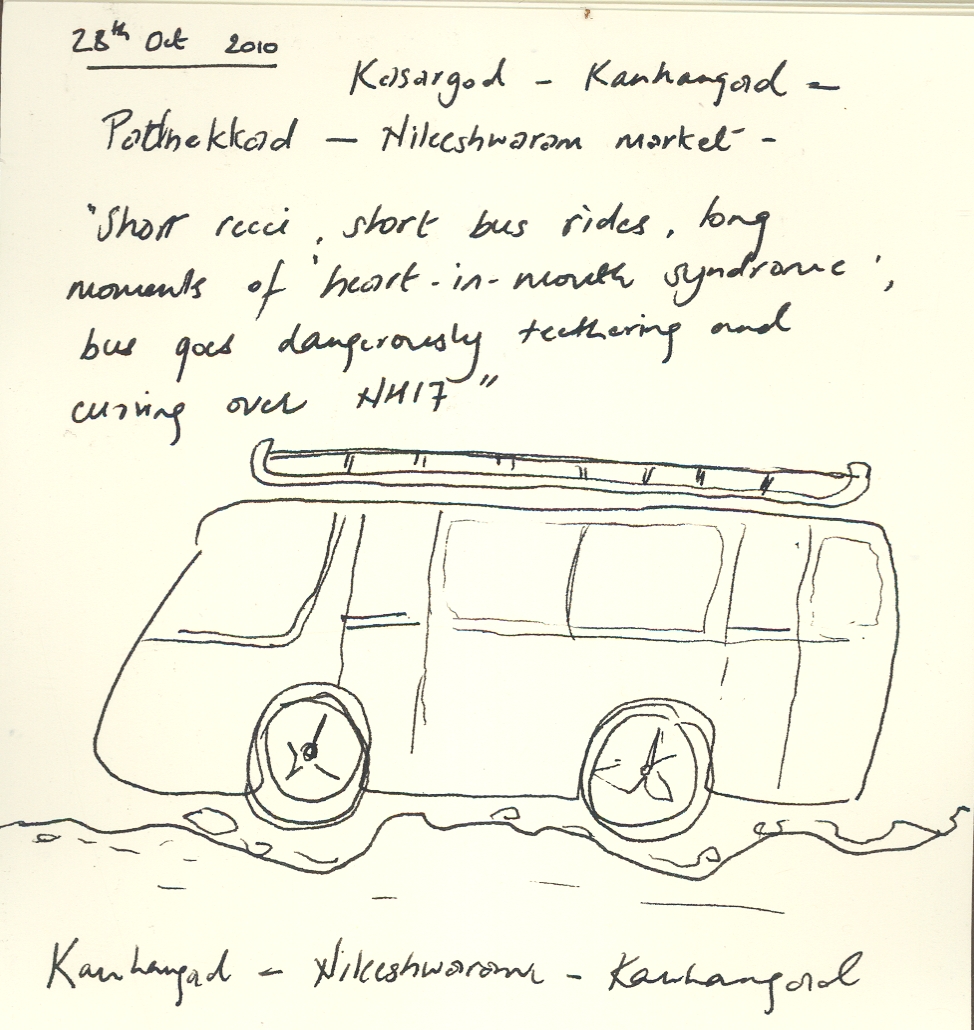 28th Oct 2010
Kasargod - Kanhangad -
Patnekkad - Nileeshwaram market -
"Short recci, short bus rides, long
moments of 'heart-in-mouth syndrome',
bus goes dangerously teethering and
curving over NH17"
Kanhangad - Nileeshwaram - Kanhangad